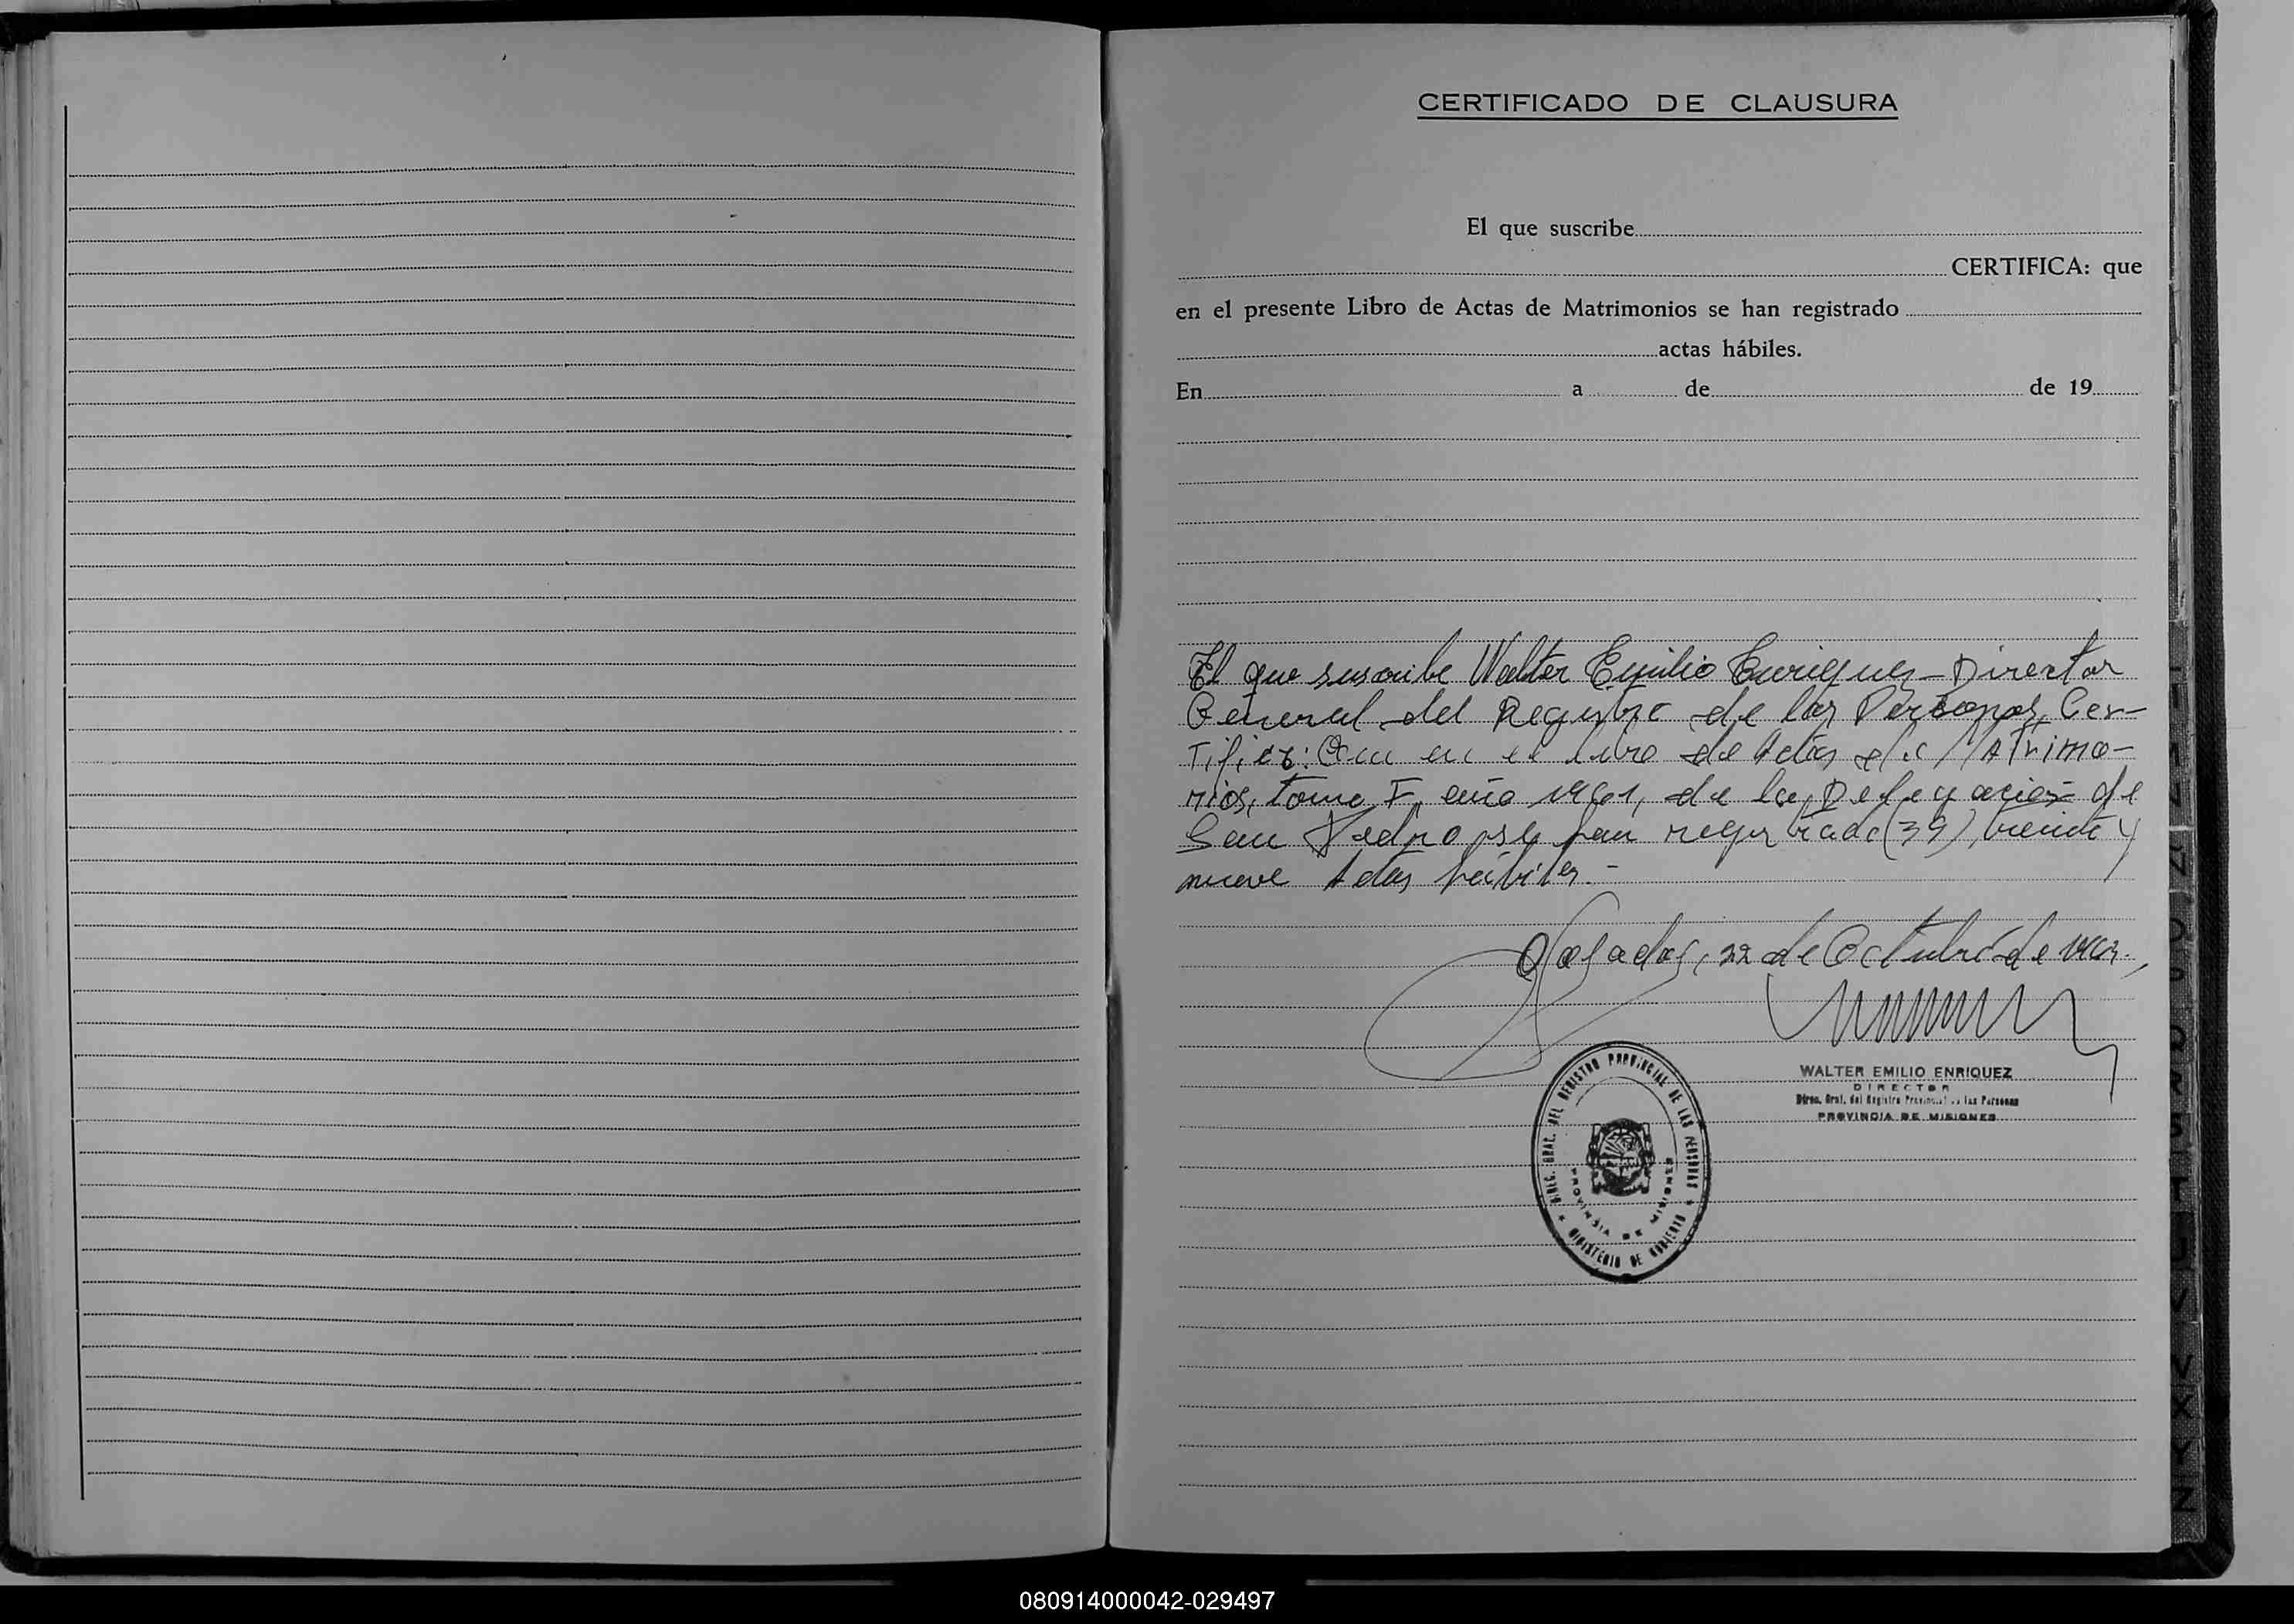 CERTIFICADO DE CLAUSURA
El que suscribe
CERTIFICA: que
en el presente Libro de Actas de Matrimonios se han registrado
actas hábiles.
En a de de 19
El que suscribe Walter Emilio Enriquez - Director
General del Registro de las Personas, Cer-
tifica: Que en el libro de Actas de Matrimo-
nios, tomo I, año 1961, de la Delegación de
San Pedro, se han registrado (39), treinta y
nueve Actas hábiles.-
Posadas, 22 de Octubre de
WALTER EMILIO ENRIQUEZ
DIRECTOR
Direc. Gral. del Registro Provincial de las Personas
PROVINCIA DE MISIONES
DIREC. GRAL. DEL REGISTRO PROVINCIAL DE LAS PERSONAS
PROVINCIA DE MISIONES
MINISTERIO DE GOBIERNO
080914000042-029497